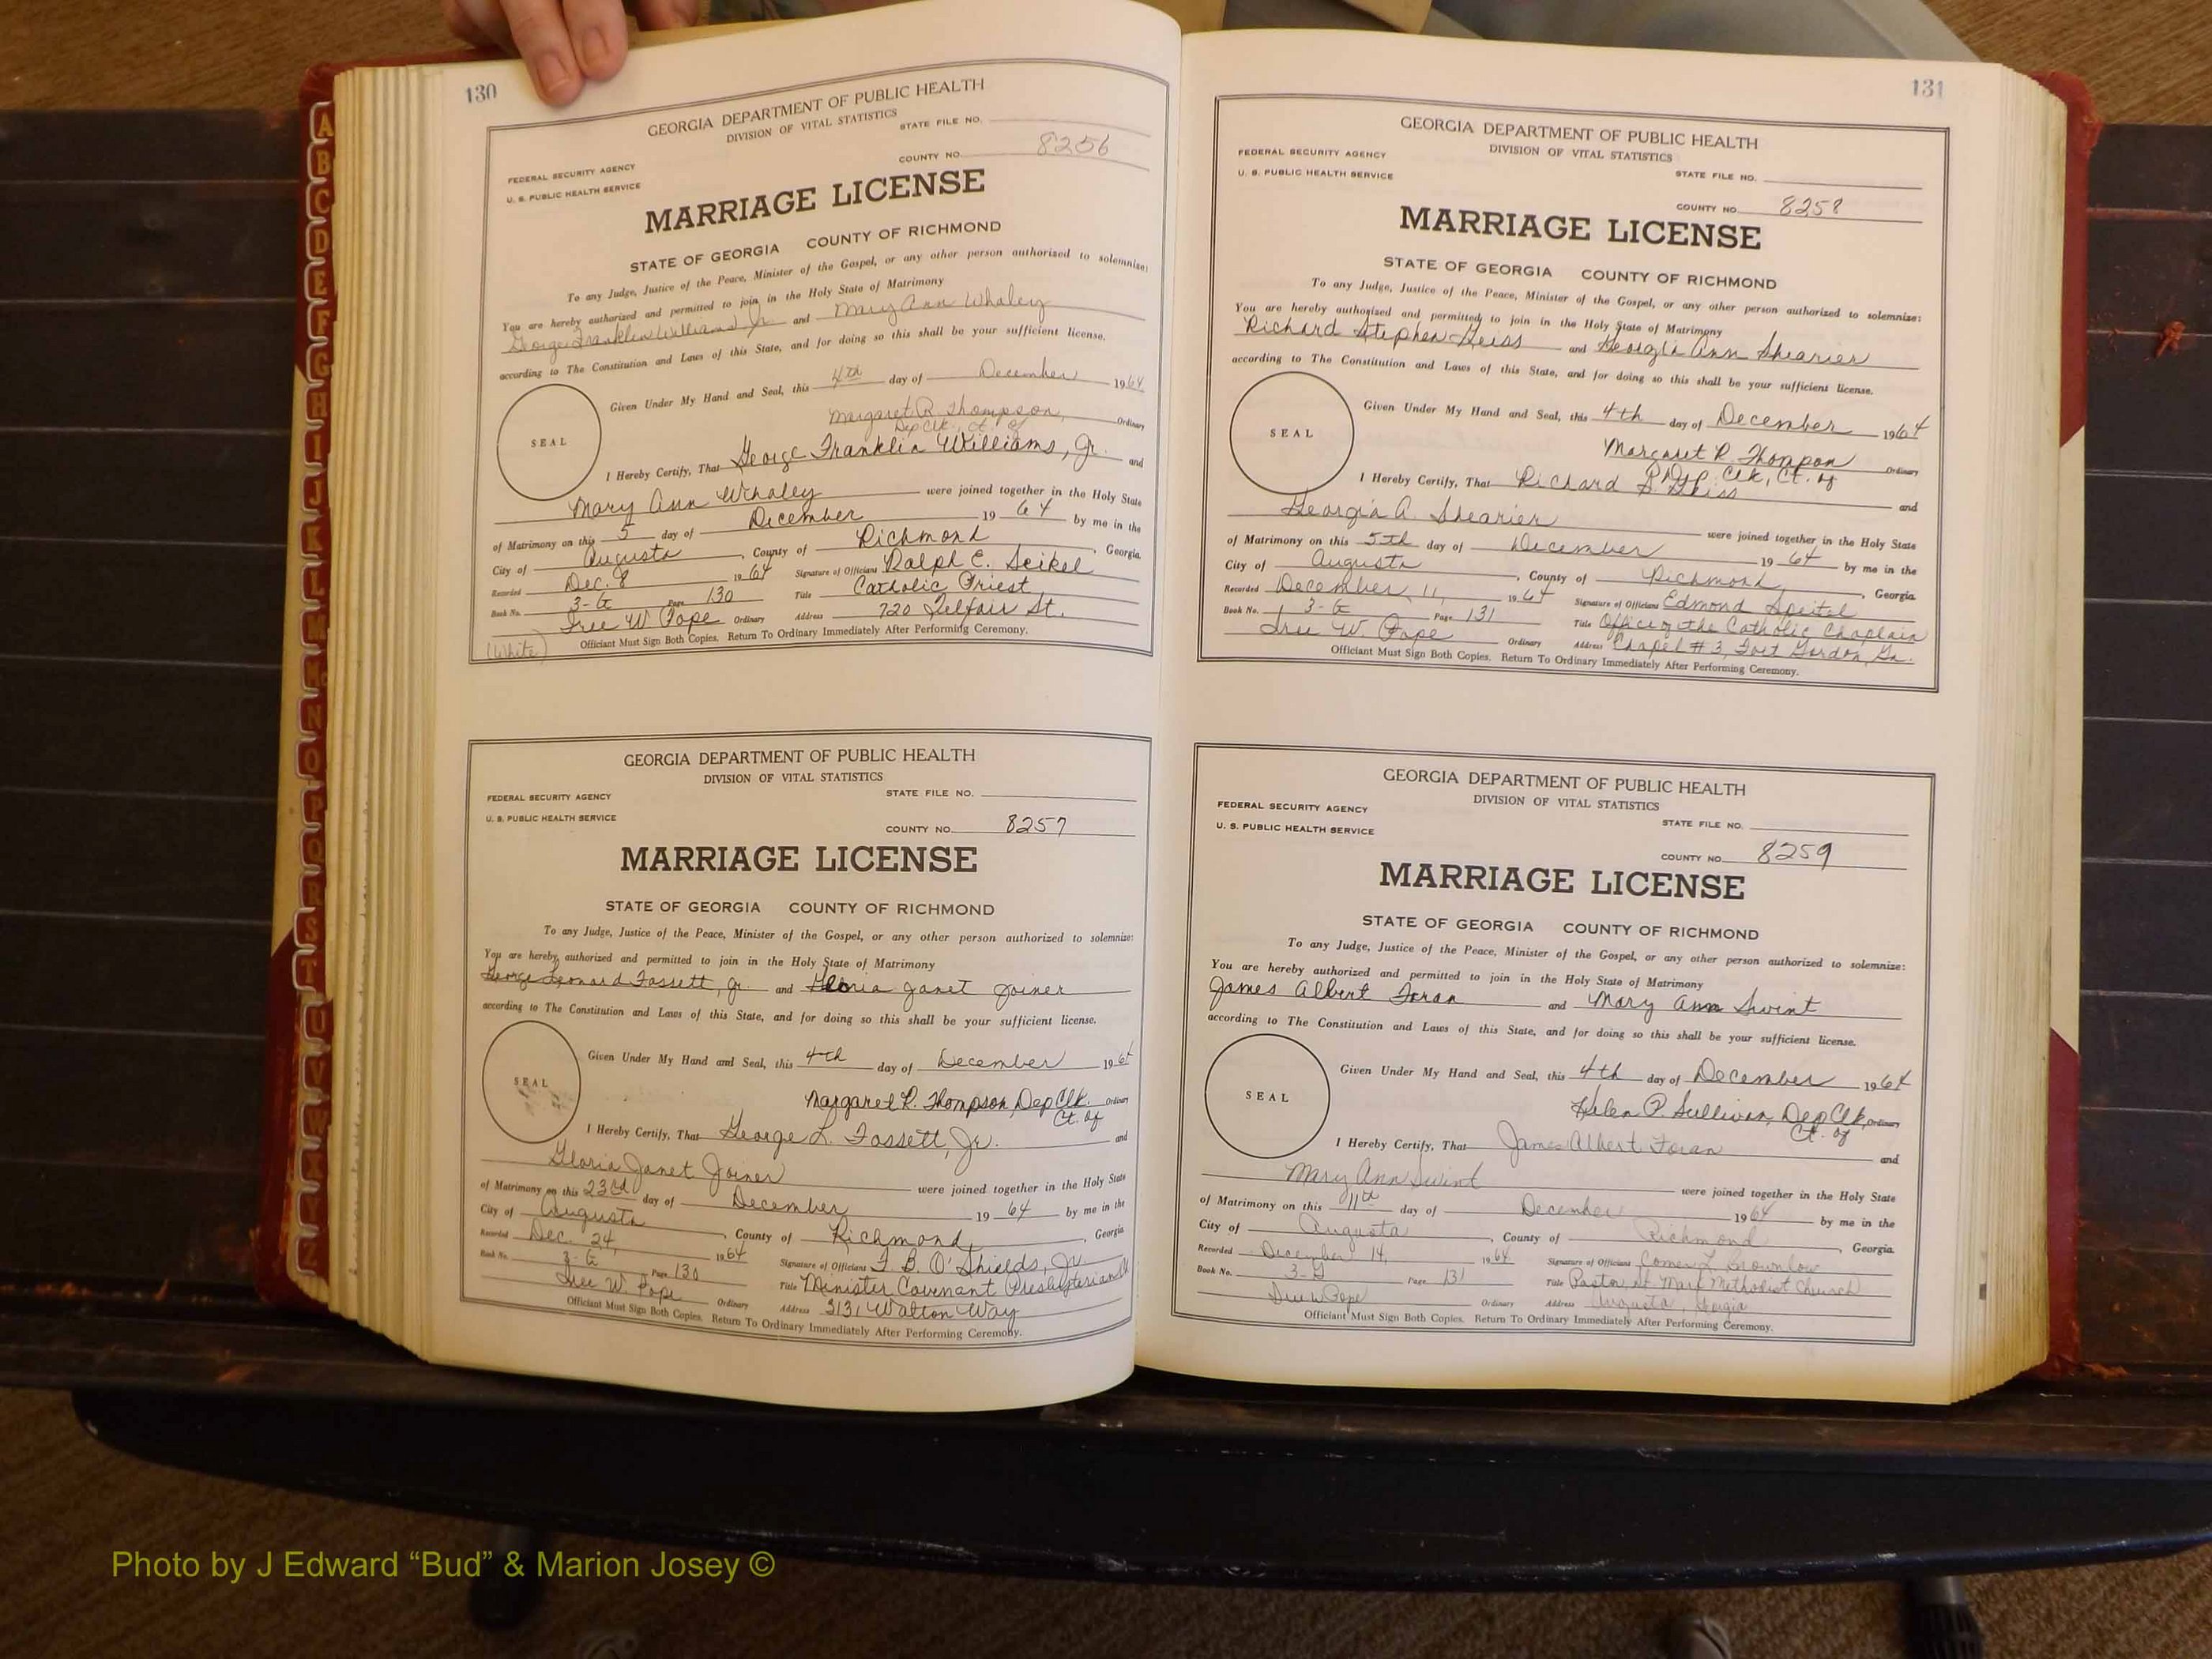 130
GEORGIA DEPARTMENT OF PUBLIC HEALTH
DIVISION OF VITAL STATISTICS
STATE FILE NO.
FEDERAL SECURITY AGENCY
COUNTY NO. 8256
U. S. PUBLIC HEALTH SERVICE
MARRIAGE LICENSE
STATE OF GEORGIA COUNTY OF RICHMOND
To any Judge, Justice of the Peace, Minister of the Gospel, or any other person authorized to solemnize:
You are hereby authorized and permitted to join in the Holy State of Matrimony
George Franklin Williams Jr. and Mary Ann Whaley
according to The Constitution and Laws of this State, and for doing so this shall be your sufficient license.
Given Under My Hand and Seal, this 4th day of December 1964
SEAL
Margaret R. Thompson, Ordinary
Dep Clk., Ct. of
I Hereby Certify, That George Franklin Williams, Jr. and
Mary Ann Whaley were joined together in the Holy State
of Matrimony on this 5 day of December 1964 by me in the
City of Augusta, County of Richmond, Georgia
Recorded Dec. 8 1964 Signature of Officiant Ralph E. Seikel
Book No. 3-G Page 130 Title Catholic Priest
Iree W. Pope Ordinary Address 720 Telfair St.
(White) Officiant Must Sign Both Copies. Return To Ordinary Immediately After Performing Ceremony.
GEORGIA DEPARTMENT OF PUBLIC HEALTH
DIVISION OF VITAL STATISTICS
FEDERAL SECURITY AGENCY
STATE FILE NO.
U. S. PUBLIC HEALTH SERVICE
COUNTY NO. 8257
MARRIAGE LICENSE
STATE OF GEORGIA COUNTY OF RICHMOND
To any Judge, Justice of the Peace, Minister of the Gospel, or any other person authorized to solemnize:
You are hereby authorized and permitted to join in the Holy State of Matrimony
George Leonard Fassett, Jr. and Gloria Janet Joiner
according to The Constitution and Laws of this State, and for doing so this shall be your sufficient license.
Given Under My Hand and Seal, this 4th day of December 1964
SEAL
Margaret R. Thompson, Dep Clk. Ordinary
Ct. of
I Hereby Certify, That George L. Fassett, Jr. and
Gloria Janet Joiner were joined together in the Holy State
of Matrimony on this 23rd day of December 1964 by me in the
City of Augusta, County of Richmond, Georgia
Recorded Dec. 24, 1964 Signature of Officiant F. B. O'Shields, Jr
Book No. 3-G Page 130 Title Minister Covenant Presbyterian
Iree W. Pope Ordinary Address 3131 Walton Way
Officiant Must Sign Both Copies. Return To Ordinary Immediately After Performing Ceremony.
131
GEORGIA DEPARTMENT OF PUBLIC HEALTH
DIVISION OF VITAL STATISTICS
FEDERAL SECURITY AGENCY
STATE FILE NO.
U. S. PUBLIC HEALTH SERVICE
COUNTY NO. 8258
MARRIAGE LICENSE
STATE OF GEORGIA COUNTY OF RICHMOND
To any Judge, Justice of the Peace, Minister of the Gospel, or any other person authorized to solemnize:
You are hereby authorized and permitted to join in the Holy State of Matrimony
Richard Stephen Geiss and Georgia Ann Shearier
according to The Constitution and Laws of this State, and for doing so this shall be your sufficient license.
Given Under My Hand and Seal, this 4th day of December 1964
SEAL
Margaret R. Thompson Ordinary
Dep. Clk, Ct. of
I Hereby Certify, That Richard S. Geiss and
Georgia A. Shearier were joined together in the Holy State
of Matrimony on this 5th day of December 1964 by me in the
City of Augusta, County of Richmond, Georgia
Recorded December 11, 1964 Signature of Officiant Edmond Speitel
Book No. 3-G Page 131 Title Office of the Catholic Chaplain
Iree W. Pope Ordinary Address Chapel # 3, Fort Gordon, Ga.
Officiant Must Sign Both Copies. Return To Ordinary Immediately After Performing Ceremony.
GEORGIA DEPARTMENT OF PUBLIC HEALTH
DIVISION OF VITAL STATISTICS
FEDERAL SECURITY AGENCY
STATE FILE NO.
U. S. PUBLIC HEALTH SERVICE
COUNTY NO. 8259
MARRIAGE LICENSE
STATE OF GEORGIA COUNTY OF RICHMOND
To any Judge, Justice of the Peace, Minister of the Gospel, or any other person authorized to solemnize:
You are hereby authorized and permitted to join in the Holy State of Matrimony
James Albert Foran and Mary Ann Swint
according to The Constitution and Laws of this State, and for doing so this shall be your sufficient license.
Given Under My Hand and Seal, this 4th day of December 1964
SEAL
Helen P. Sullivan, Dep Clk, Ordinary
Ct. of
I Hereby Certify, That James Albert Foran and
Mary Ann Swint were joined together in the Holy State
of Matrimony on this 11th day of December 1964 by me in the
City of Augusta, County of Richmond, Georgia
Recorded December 14, 1964 Signature of Officiant Comer L. Brownlow
Book No. 3-G Page 131 Title Pastor, St. Mark Methodist Church
Iree W Pope Ordinary Address Augusta, Georgia
Officiant Must Sign Both Copies. Return To Ordinary Immediately After Performing Ceremony.
A
B
C
D
E
F
G
H
I
J
K
L
M
N
O
P
Q
R
S
T
U
V
W
Z
Photo by J Edward “Bud” & Marion Josey ©